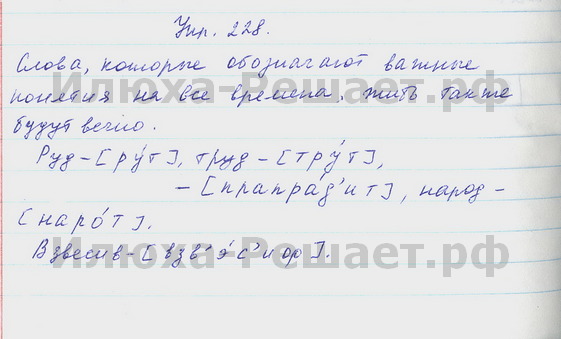 Упр. 228.
Слова, которые обозначают важные
понятия на все времена, жить также
будут вечно.
Руд – [ру́т], труд – [тру́т],
– [прапра́д'ит], народ –
[наро́т].
Взвесив – [взв'э́с'иф].
Илюха-Решает.рф
Илюха-Решает.рф